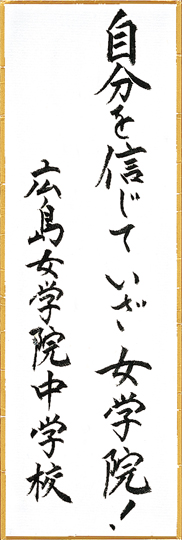 自分を信じていざ、女学院！
広島女学院中学校